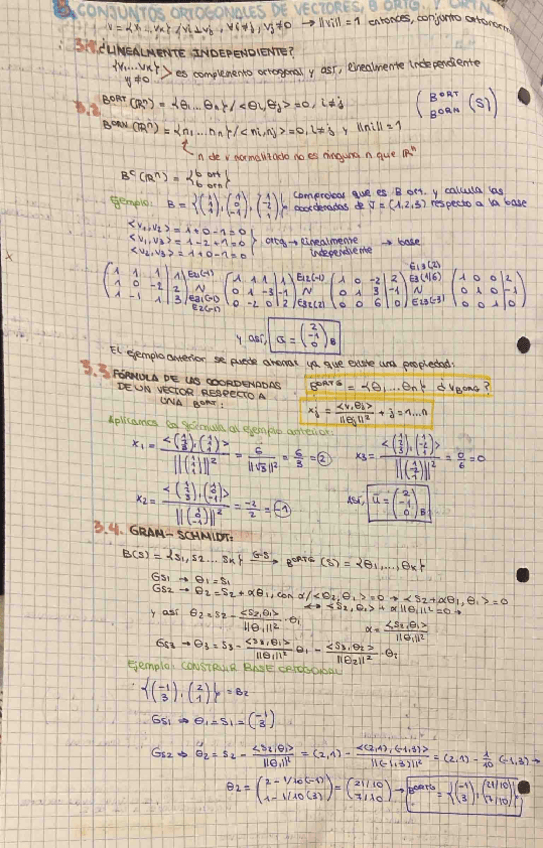 3. CONJUNTOS ORTOGONALES DE VECTORES, B ORTG. Y ORTN.
V = {V₁...Vk} / Vi ⊥ Vj, ∀i≠j, Vj≠0 → ||Vi|| = 1 entonces, conjunto ortonorm
3.1. ¿LINEALMENTE INDEPENDIENTE?
{V₁...Vk}
Vj≠0 > es complemento ortogonal y así, linealmente independiente
3.2. BORT(ℝⁿ) = {θ₁...θn} / <θi, θj> = 0, i≠j
(BORT BORN (S))
BORN(ℝⁿ) = {n₁...nn} / <ni, nj> = 0, i≠j y ||ni|| = 1
n de v normalizado no es ninguna n que ℝⁿ
Bᶜ(ℝⁿ) = {b ort b orn}
Ejemplo: B = {(1 1 1), (1 0 -1), (1 -2 1)} Comprobar que es B ort. y calcula las
coordenadas de v̄ = (1,2,3) respecto a la base
<V₁,V₂> = 1+0-1=0
<V₁,V₃> = 1-2+1=0 ortg → linealmente independiente → base
<V₂,V₃> = 1+0-1=0
y así, ū = (2 -1 0)B
El ejemplo anterior se puede ahorrar ya que existe una propiedad:
3.3 FÓRMULA DE LAS COORDENADAS
DE UN VECTOR RESPECTO A
UNA BORT:
BORTG = {θ₁...θn} ¿VBORTG?
xj = <v,θj> / ||θj||² ∀ j=1...n
Aplicamos la fórmula al ejemplo anterior:
x₁ = <(1 2 3),(1 1 1)> / ||(1 1 1)||² = 6 / ||√3||² = 6/3 = 2
x₃ = <(1 2 3),(1 -2 1)> / ||(1 -2 1)||² = 0/6 = 0
x₂ = <(1 2 3),(1 0 -1)> / ||(1 0 -1)||² = -2/2 = -1
Así, ū = (2 -1 0)B
3.4. GRAM-SCHMIDT:
B(S) = {S₁, S₂...Sk} G-S→ BORTG(S) = {θ₁,...,θk}
GS₁ → θ₁ = S₁
GS₂ → θ₂ = S₂ + αθ₁, con α / <θ₂,θ₁> = 0 → <S₂+αθ₁, θ₁> = 0
↔ <S₂,θ₁> + α||θ₁||² = 0 →
y así θ₂ = S₂ - <S₂,θ₁> / ||θ₁||² · θ₁
α = <S₂,θ₁> / ||θ₁||²
GS₃ → θ₃ = S₃ - <S₃,θ₁> / ||θ₁||² θ₁ - <S₃,θ₂> / ||θ₂||² · θ₂
Ejemplo: CONSTRUIR BASE ORTOGONAL
{(-1 3), (2 1)} = B₂
GS₁ → θ₁ = S₁ = (-1 3)
GS₂ → θ₂ = S₂ - <S₂,θ₁> / ||θ₁||² = (2,1) - <(2,1),(-1,3)> / ||(-1,3)||² = (2,1) - 1/10 (-1,3) →
θ₂ = (2 - 1/10(-1) 1 - 1/10(3)) = (21/10 7/10) → BORTG = {(-1 3), (21/10 7/10)}